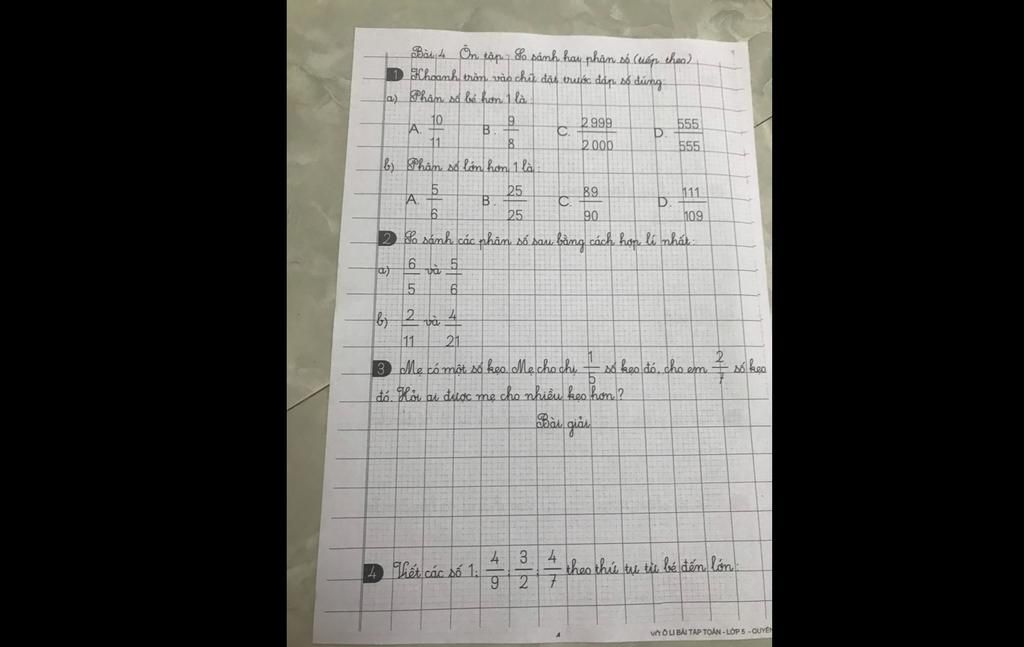 Bài 4 Ôn tập: So sánh hai phân số (tiếp theo)
1 Khoanh tròn vào chữ đặt trước đáp số đúng:
a) Phân số bé hơn 1 là:
A. 10/11 B. 9/8 C. 2999/2000 D. 555/555
b) Phân số lớn hơn 1 là:
A. 5/6 B. 25/25 C. 89/90 D. 111/109
2 So sánh các phân số sau bằng cách hợp lí nhất:
a) 6/5 và 5/6
b) 2/11 và 4/21
3 Mẹ có một số kẹo. Mẹ cho chị 1/5 số kẹo đó, cho em 2/7 số kẹo
đó. Hỏi ai được mẹ cho nhiều kẹo hơn?
Bài giải
4 Viết các số 1; 4/9; 3/2; 4/7 theo thứ tự từ bé đến lớn:
4 VỞ Ô LI BÀI TẬP TOÁN - LỚP 5 - QUYỂN